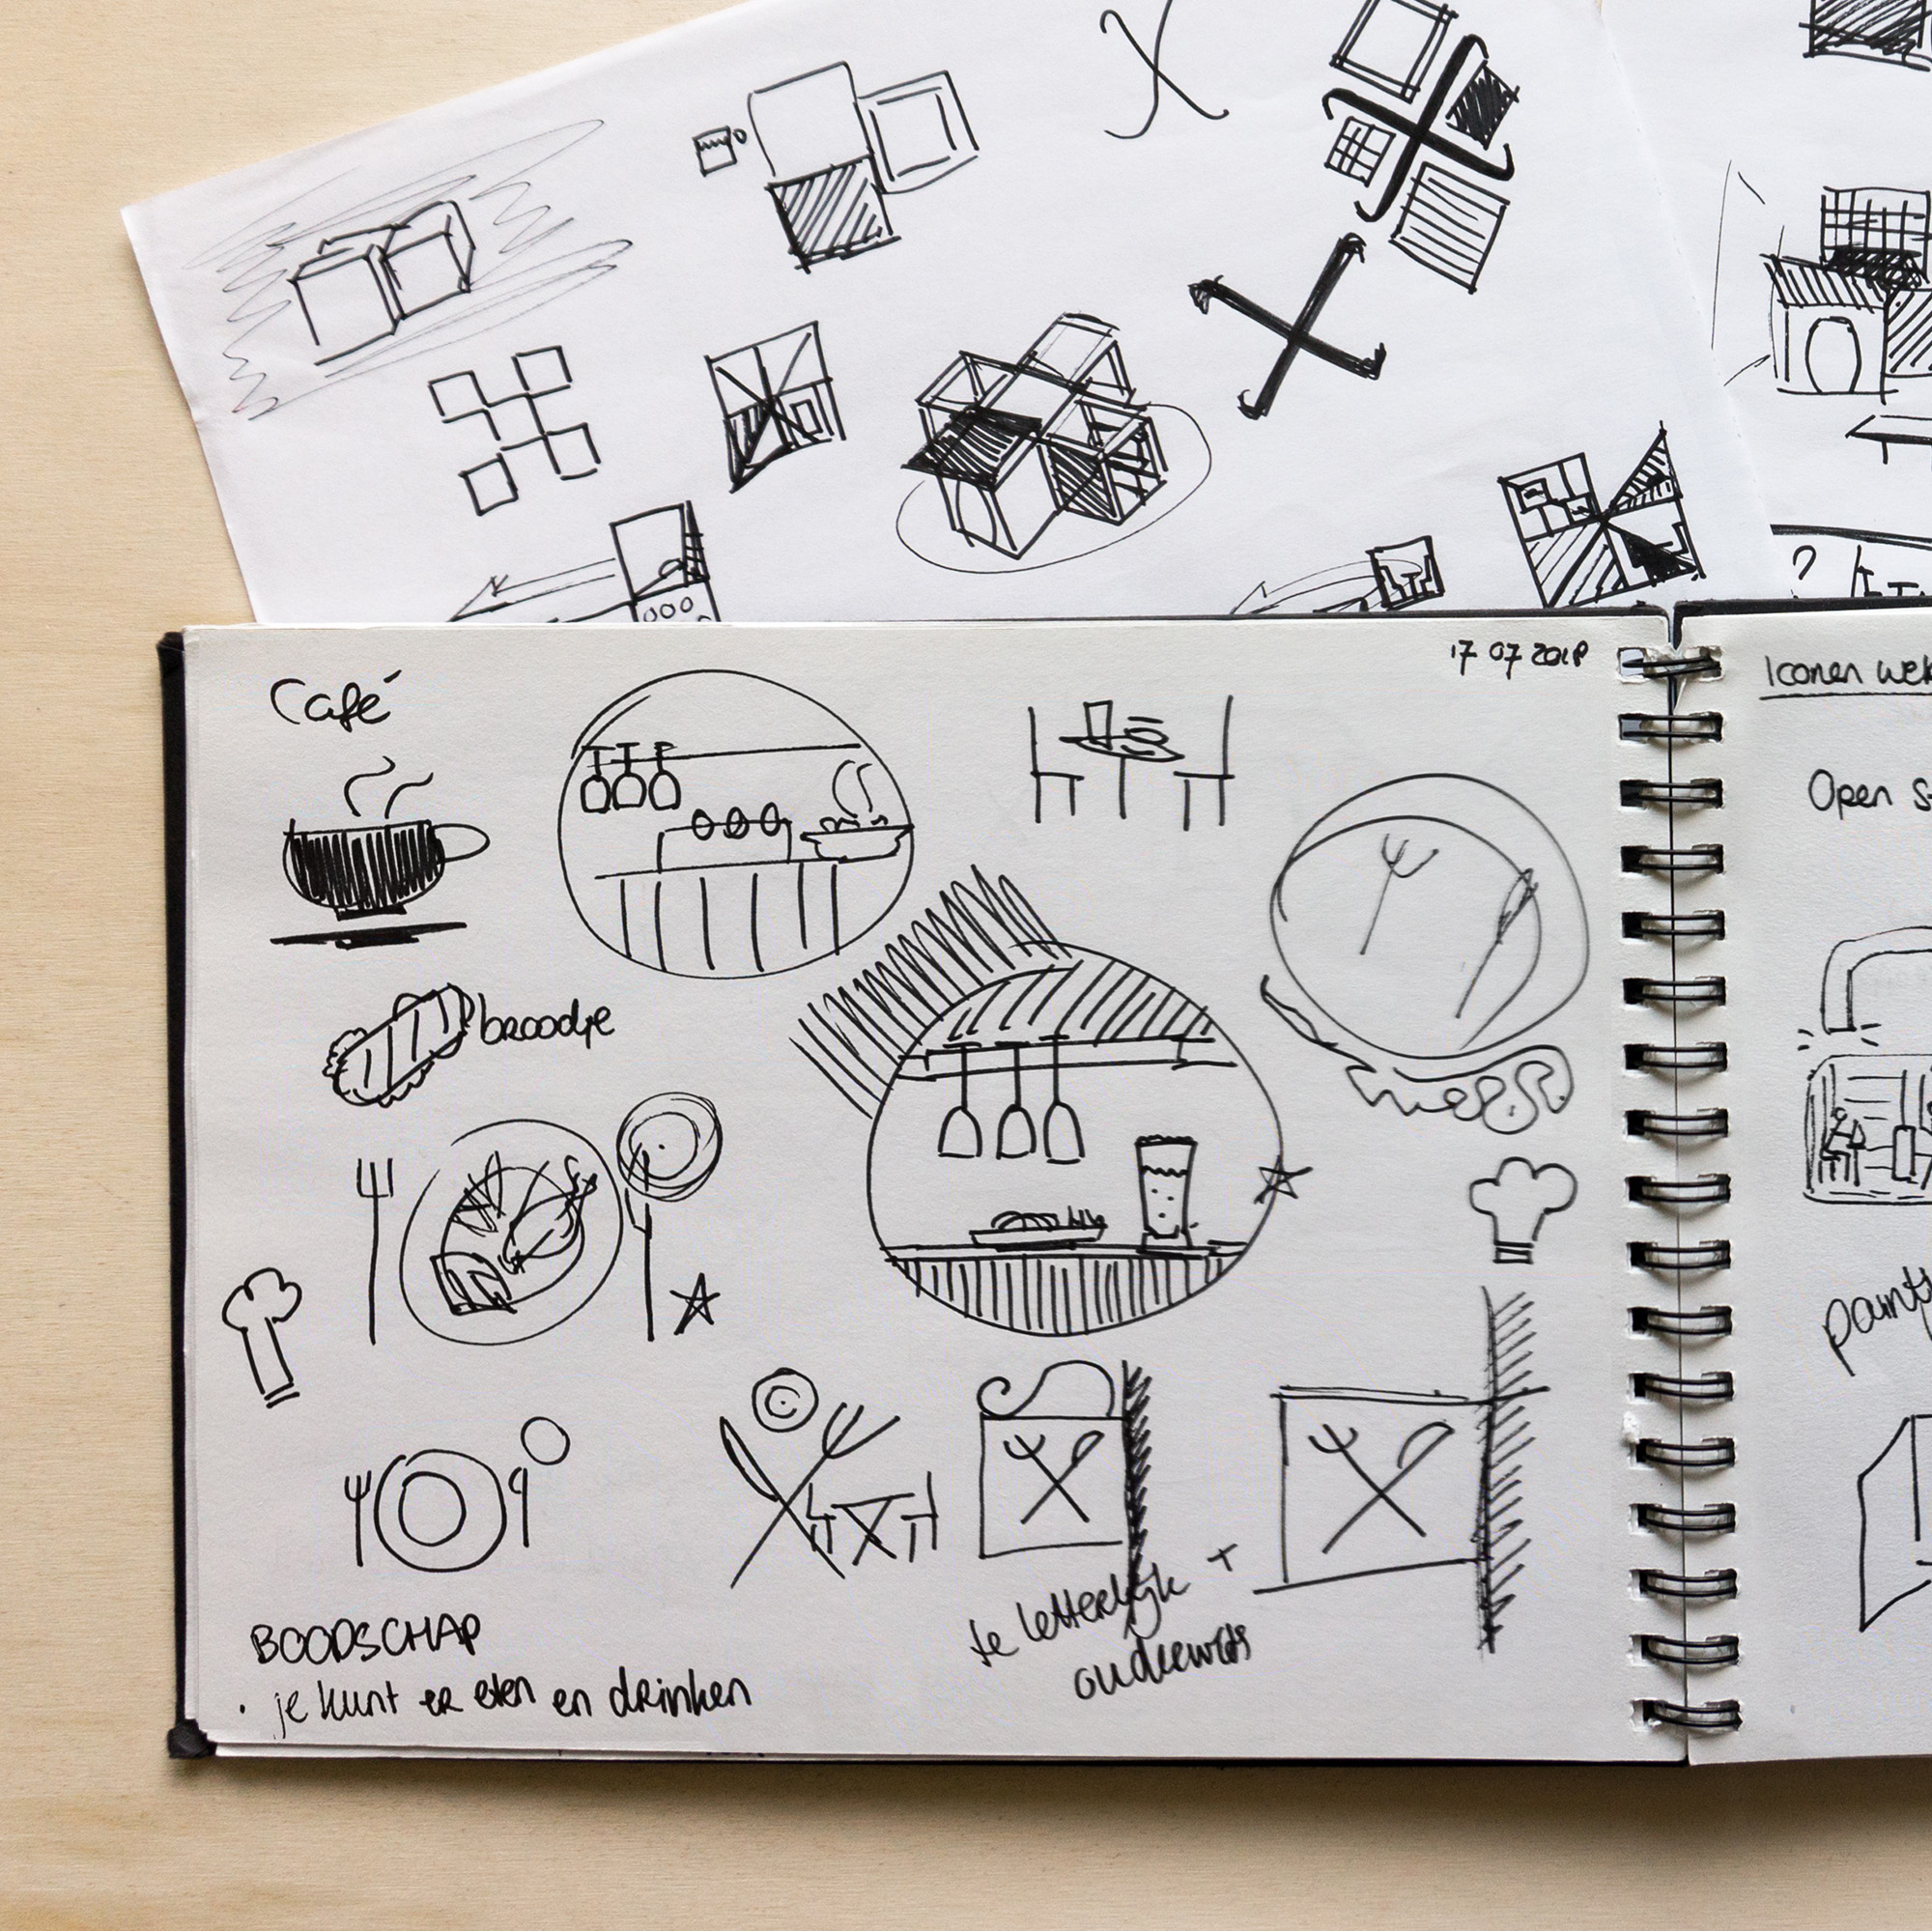 ?
17 07 2018
Café
broodje
BOODSCHAP
· je kunt er eten en drinken
te letterlijk +
ouderwets
Iconen
Open